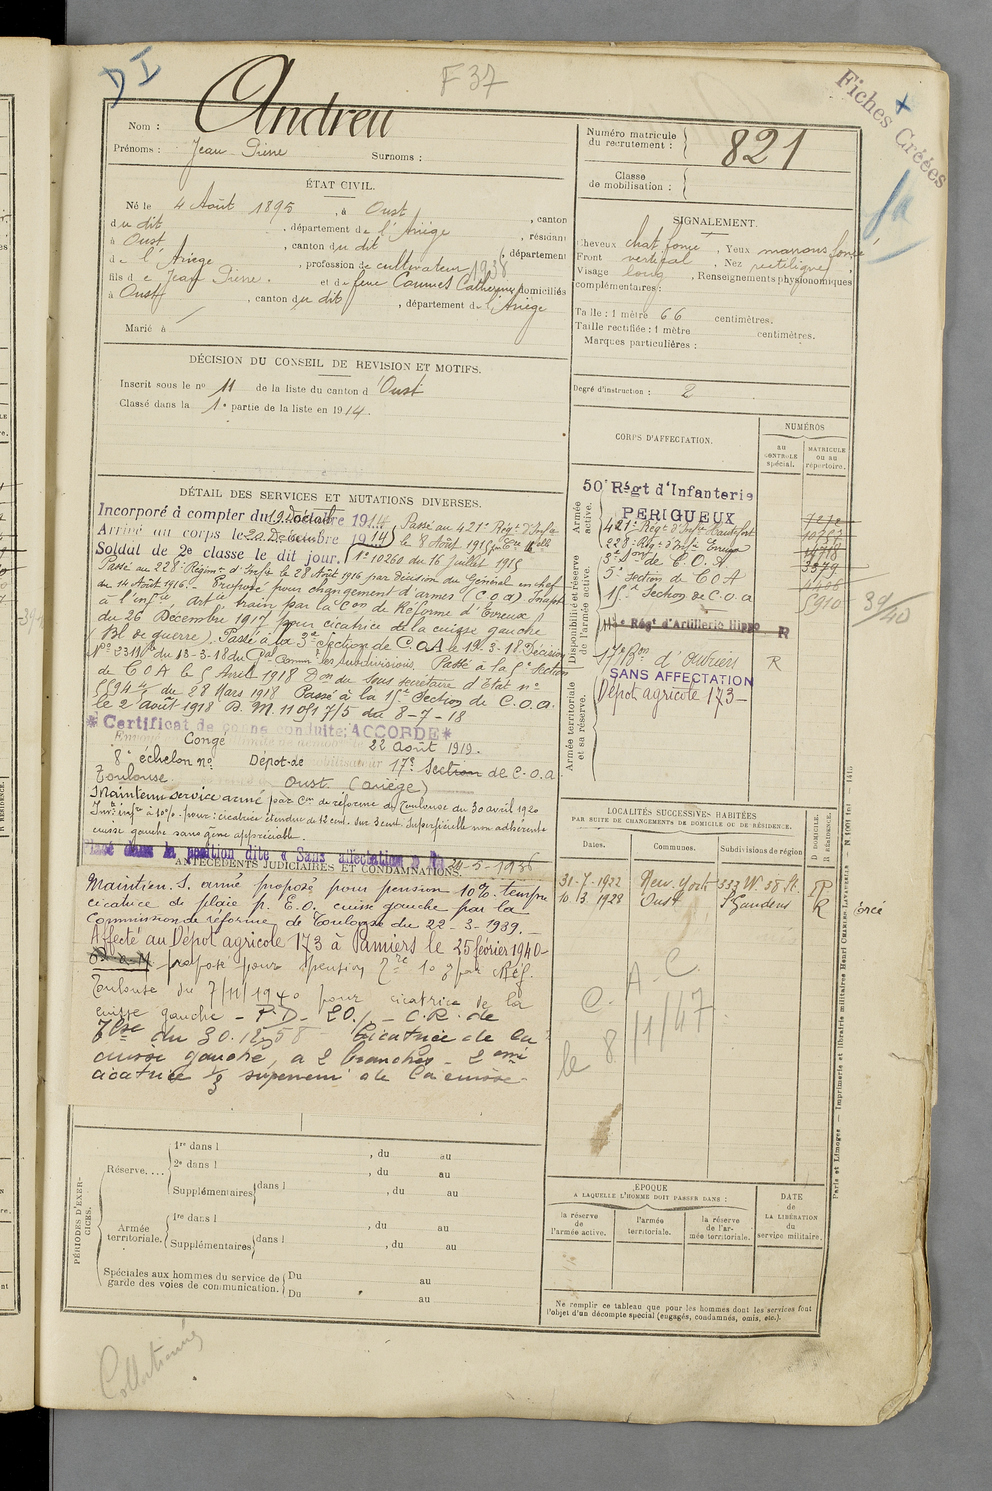 DI
F 37
Fiches Créées
Nom : Andreu
Prénoms : Jean Pierre Surnoms :
Numéro matricule du recrutement : 821
Classe de mobilisation :
ÉTAT CIVIL.
Né le 4 Août 1895, à Oust, canton
du dit, département de l'Ariège, résidant
à Oust, canton du dit, département
de l'Ariège, profession de cultivateur 1938
fils de Jean Pierre. et de feue Caumes Catherine domiciliés
à Oust, canton du dit, département de l'Ariège
Marié à
SIGNALEMENT.
Cheveux chat foncé, Yeux marrons foncé
Front vertical, Nez rectiligne
Visage long, Renseignements physionomiques
complémentaires :
Taille : 1 mètre 66 centimètres.
Taille rectifiée : 1 mètre centimètres.
Marques particulières :
Degré d'instruction : 2
DÉCISION DU CONSEIL DE REVISION ET MOTIFS.
Inscrit sous le nº 11 de la liste du canton d'Oust
Classé dans la 1e partie de la liste en 1914.
DÉTAIL DES SERVICES ET MUTATIONS DIVERSES.
Incorporé à compter du 19 Décembre 1914
Arrivé au corps le 20 Décembre 1914
Soldat de 2e classe le dit jour.
Passé au 421e Régt d'Infie
le 8 Août 1915
nº 10260 du 16 juillet 1915
Passé au 228e Régimt d'Infie le 28 Août 1916 par décision du Général en chef
du 14 Août 1916. Proposé pour changement d'armes (C.O.A) Inapte
à l'infie, artie train par la Con de Réforme d'Evreux
du 26 Décembre 1917 pour cicatrice de la cuisse gauche
(Bl. de guerre). Passé à la 3e Section de C.O.A le 19-3-18 Décision
Nº 2319 du 13-3-18 du Gal Commt les subdivisions. Passé à la 5e Section
de C O A le 5 Avril 1918 Don du Sous secrétaire d'Etat nº
5594 du 28 Mars 1918 Passé à la 15e Section de C.O.A.
le 2 Août 1918 D.M. 11091 7/5 du 8-7-18
Certificat de bonne conduite: ACCORDÉ
Congé 22 Août 1919.
8e échelon nº Dépôt de 17e Section de C.O.A
Toulouse. Oust (Ariège)
Maintenu service armé par Con de réforme de Toulouse du 30 avril 1920
Invté infre à 10% pour : cicatrice étendue de 12 cent. sur 3 cent. superficielle non adhérente
cuisse gauche sans gêne appréciable.
Passé dans la position dite « Sans affectation »
ANTÉCÉDENTS JUDICIAIRES ET CONDAMNATIONS.
Maintien S. armé proposé pour pension 10% tempre
cicatrice de plaie p. E.O. cuisse gauche par la
Commission de réforme de Toulouse du 22-3-1939.
Affecté au Dépôt agricole 173 à Pamiers le 25 février 1940
proposé pour pension 10 % par Réf.
Toulouse du 7/11/1940 pour cicatrice de la
cuisse gauche - P.D. - 20% - C.R. de
Tlse du 30.12.58 Cicatrice de la
cuisse gauche, à 2 branches - 2eme
cicatrice 1/3 superieur de la cuisse.
CORPS D'AFFECTATION.
NUMÉROS
au CONTROLE spécial.
MATRICULE ou au répertoire.
Armée active.
Disponibilité et réserve de l'armée active.
Armée territoriale et sa réserve.
50e Régt d'Infanterie
PERIGUEUX
421e Régt d'Infie Hautefort
228e Régt d'Infie Evreux
3e Son de C.O.A
5e Section de C O A
15e Section de C.O.A 5910
Régt d'Artillerie Hippo R
17e Bon d'Ouvriers R
SANS AFFECTATION
Dépôt agricole 173
39/40
LOCALITÉS SUCCESSIVES HABITÉES
PAR SUITE DE CHANGEMENTS DE DOMICILE OU DE RÉSIDENCE.
Dates. Communes. Subdivisions de région D DOMICILE. R RÉSIDENCE.
31-7-1922 New-York 333 W. 58 St. R
10.3.1928 Oust St Gaudens R
C. A. C.
le 8/1/47
PÉRIODES D'EXERCICES.
Réserve....
1re dans l , du au
2e dans l , du au
Supplémentaires dans l , du au
Armée territoriale.
1re dans l , du au
Supplémentaires dans l , du au
Spéciales aux hommes du service de garde des voies de communication.
Du au
Du au
ÉPOQUE
A LAQUELLE L'HOMME DOIT PASSER DANS :
la réserve de l'armée active.
l'armée territoriale.
la réserve de l'armée territoriale.
DATE de LA LIBÉRATION du service militaire.
Ne remplir ce tableau que pour les hommes dont les services font
l'objet d'un décompte spécial (engagés, condamnés, omis, etc.).
Paris et Limoges. — Imprimerie et librairie militaires Henri CHARLES-LAVAUZELLE.